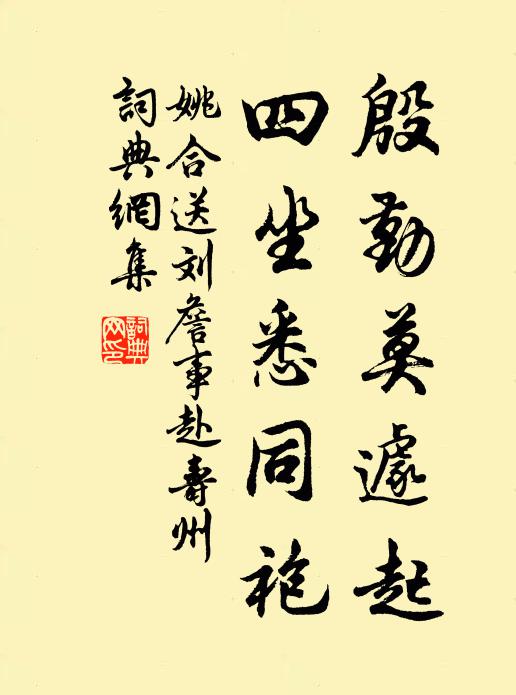 殷勤莫遽起
四坐悉同袍
姚合送刘詹事赴寿州
詞典網集
詞典网印